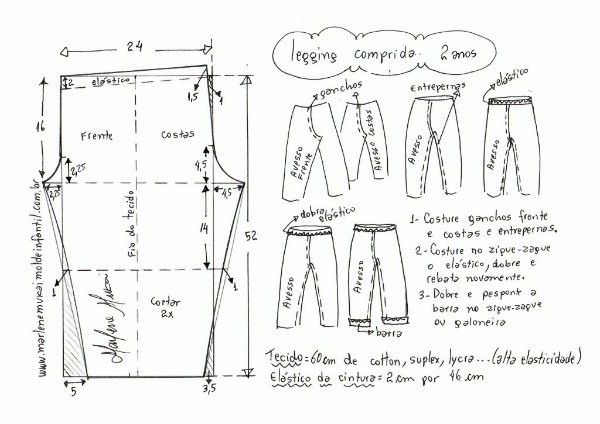 legging comprida 2 anos
24
2
elástico
1,5
1
16
Frente
Costas
2,25
4,5
2,75
4,5
Fio do tecido
14
52
1
1
Cortar
2x
Marlene Mukai
5
3,5
www.marlenemukaimoldeinfantil.com.br
ganchos
Entrepernas
elástico
Avesso
Frente
Avesso Costas
Avesso
Avesso
dobra
elástico
Avesso
Avesso
barra
1- Costure ganchos frente
e costas e entrepernas.
2- Costure no zigue-zague
o elástico, dobre e
rebata novamente.
3- Dobre e pesponte a
barra no zigue-zague
ou galoneira
Tecido = 60cm de cotton, suplex, lycra... (alta elasticidade)
Elástico da cintura = 2cm por 46 cm